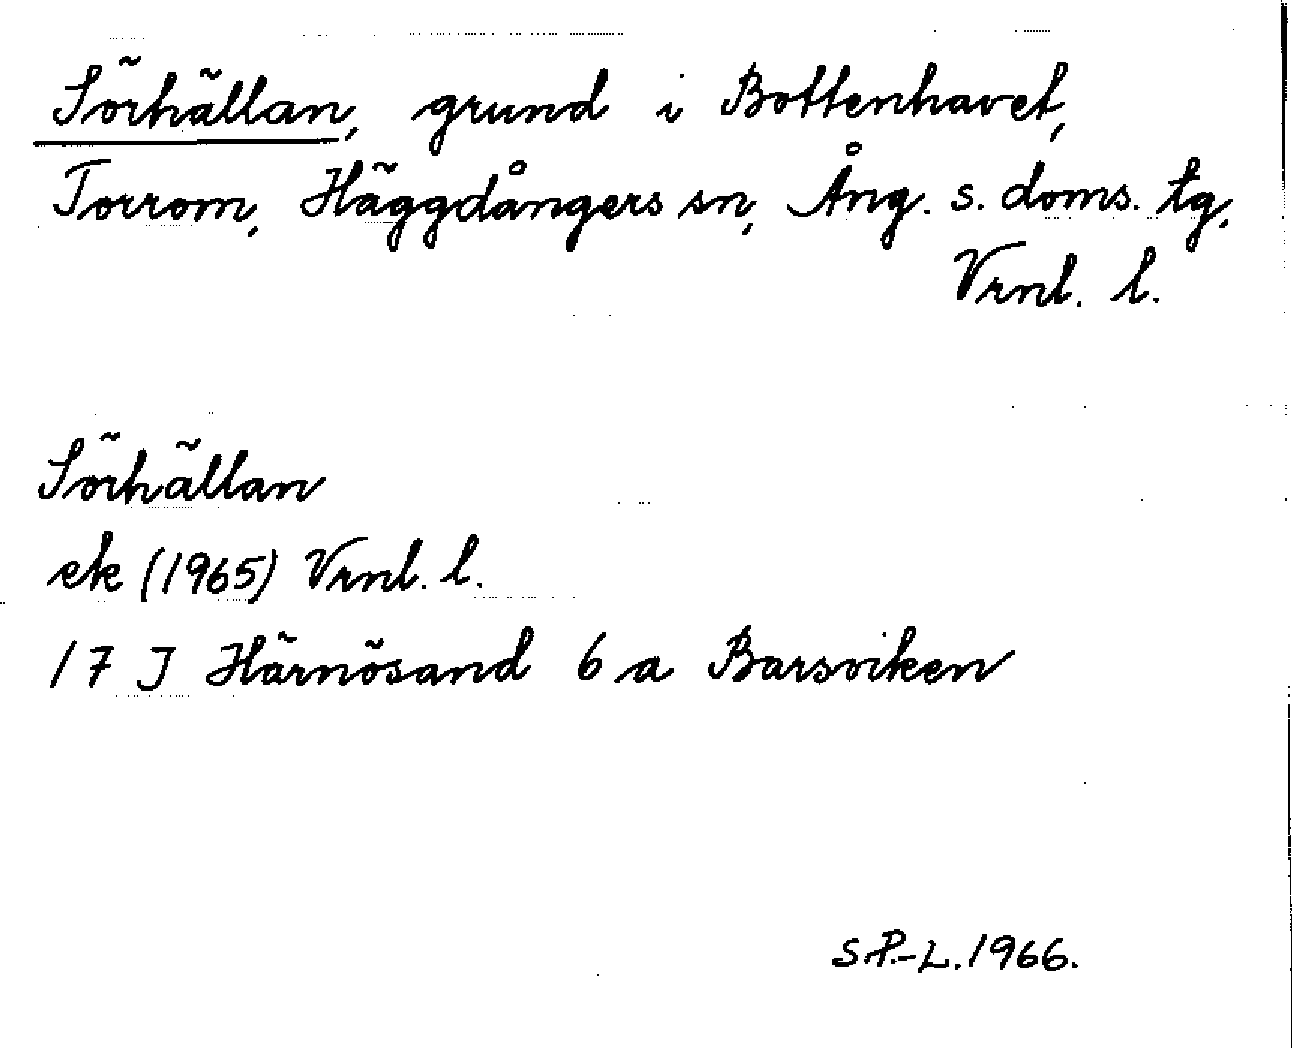 Sörhällan, grund i Bottenhavet,
Torrom, Häggdångers sn, Ång. s. doms. tg,
Vrnl. l.
Sörhällan
ek (1965) Vrnl. l.
17 J Härnösand 6 a Barsviken
S P.-L. 1966.